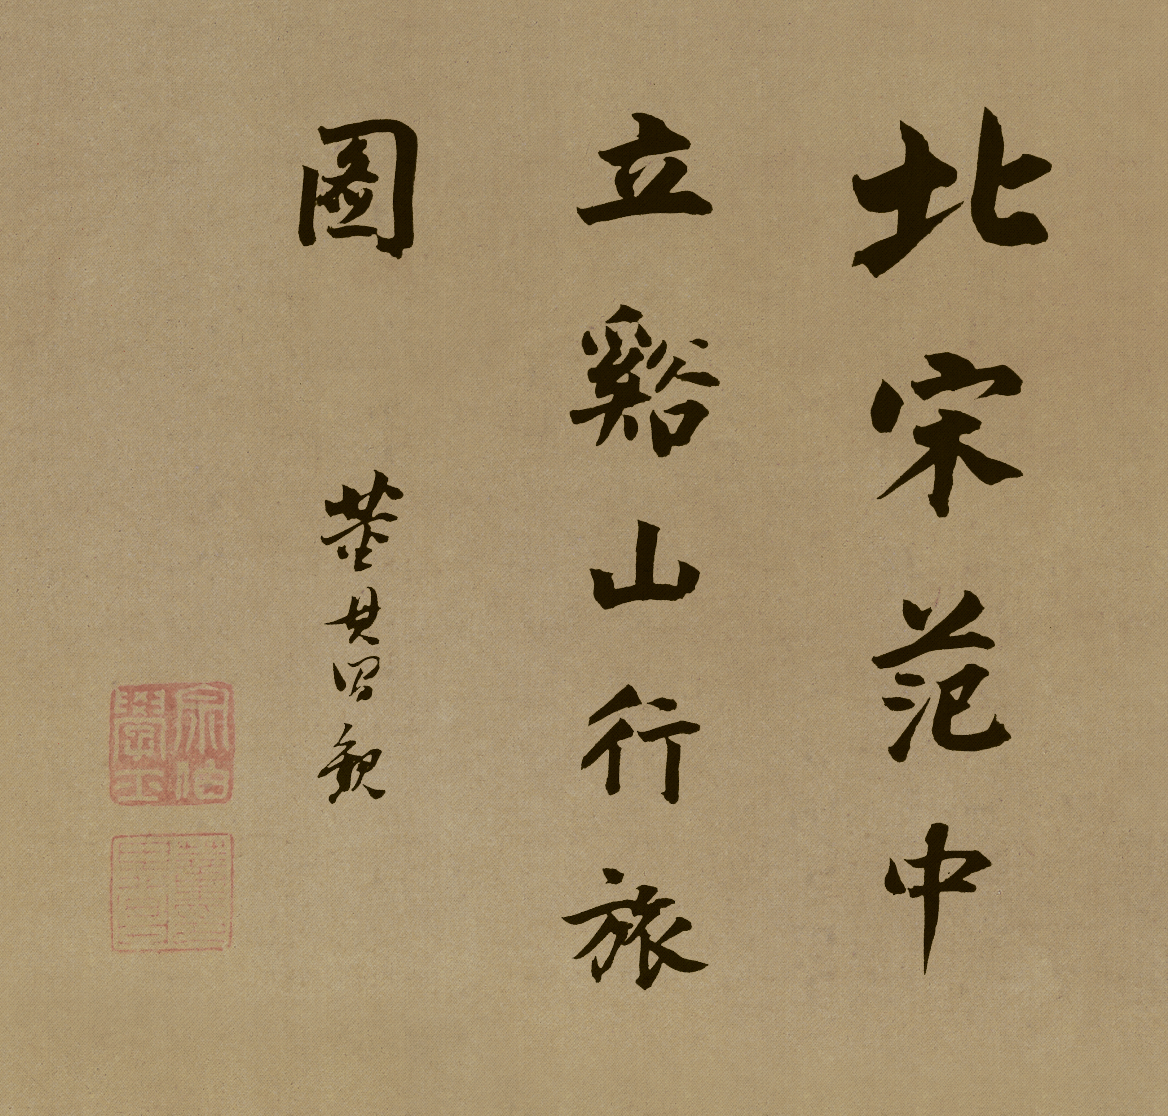 北宋范中
立谿山行旅
圖 董其昌觀
宗伯學士